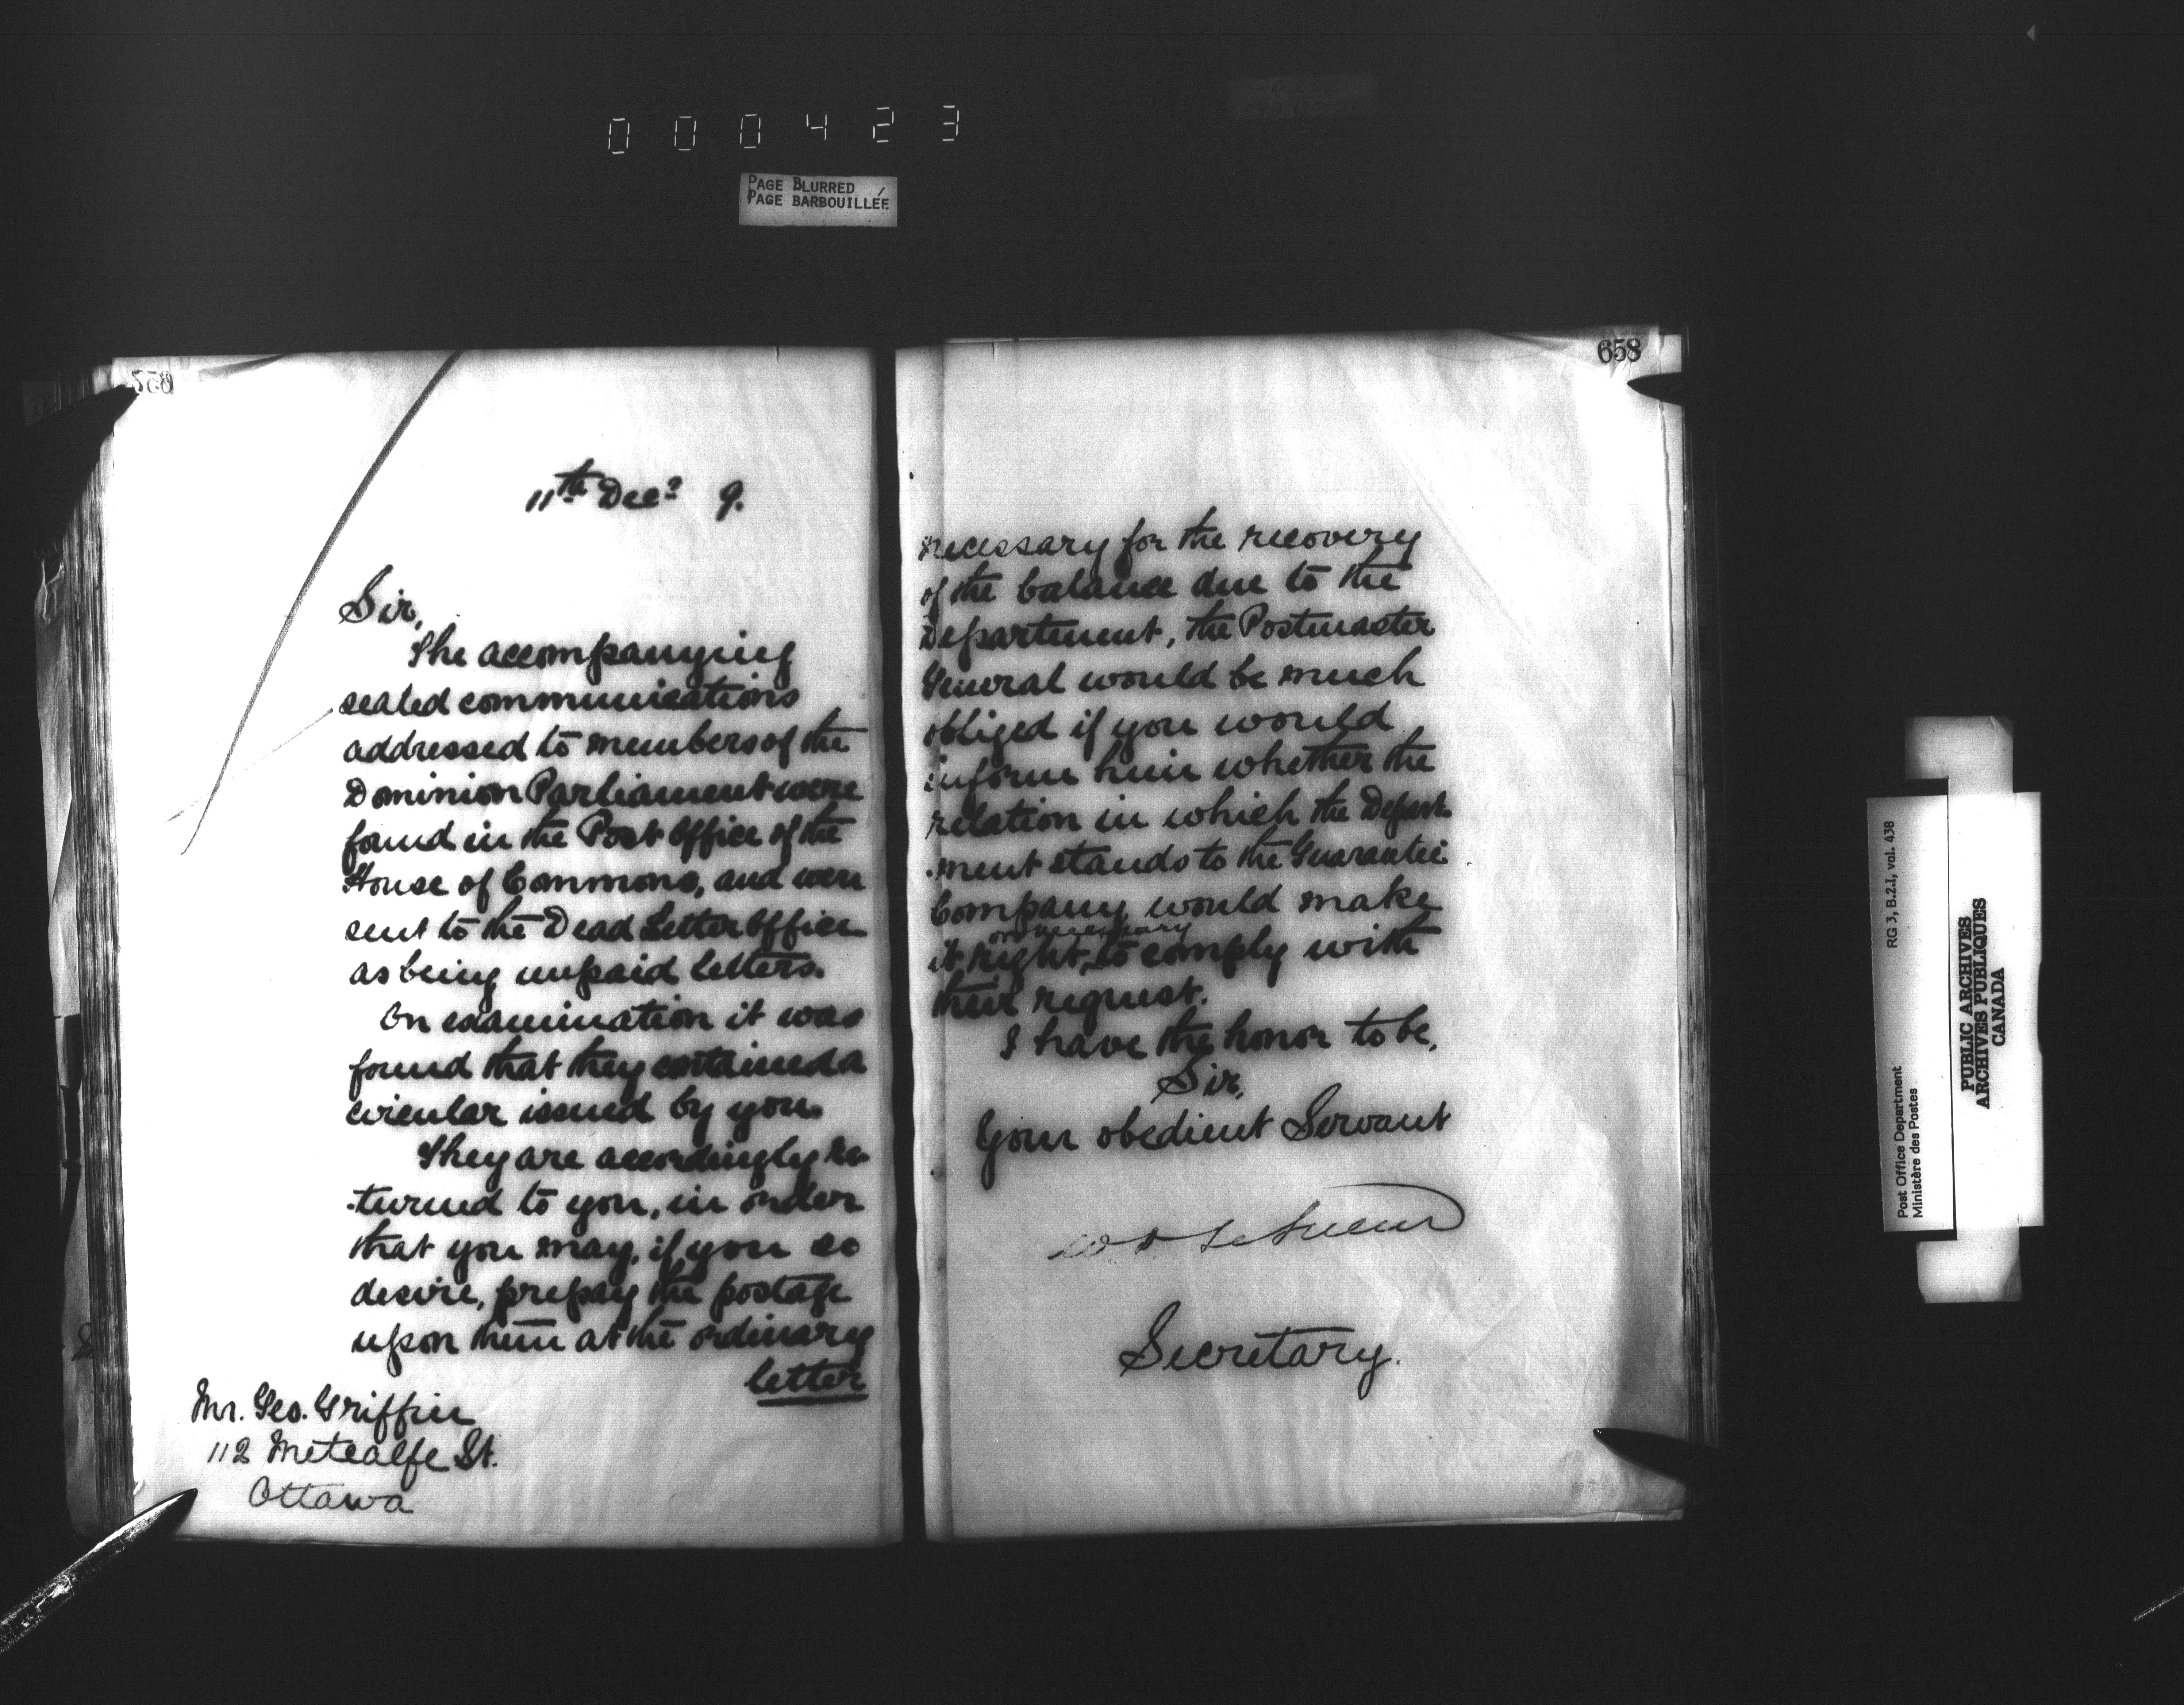 000423
PAGE BLURRED
PAGE BARBOUILLÉE
11th Decr 9.
Sir,
The accompanying
sealed communications
addressed to members of the
Dominion Parliament were
found in the Post Office of the
House of Commons, and were
sent to the Dead Letter Office
as being unpaid letters.
On examination it was
found that they contained a
circular issued by you.
They are accordingly re-
-turned to you, in order
that you may, if you so
desire, prepay the postage
upon them at the ordinary
letter
Mr. Geo. Griffin
112 Metcalfe St.
Ottawa
658
necessary for the recovery
of the balance due to the
Department, the Postmaster
General would be much
obliged if you would
inform him whether the
relation in which the Depart-
-ment stands to the Guarantee
Company, would make
or necessary
it right, to comply with
their request.
I have the honor to be,
Sir,
Your obedient Servant
W D LeSueur
Secretary.
Post Office Department
Ministère des Postes
RG 3, B.2.I, vol. 438
PUBLIC ARCHIVES
ARCHIVES PUBLIQUES
CANADA